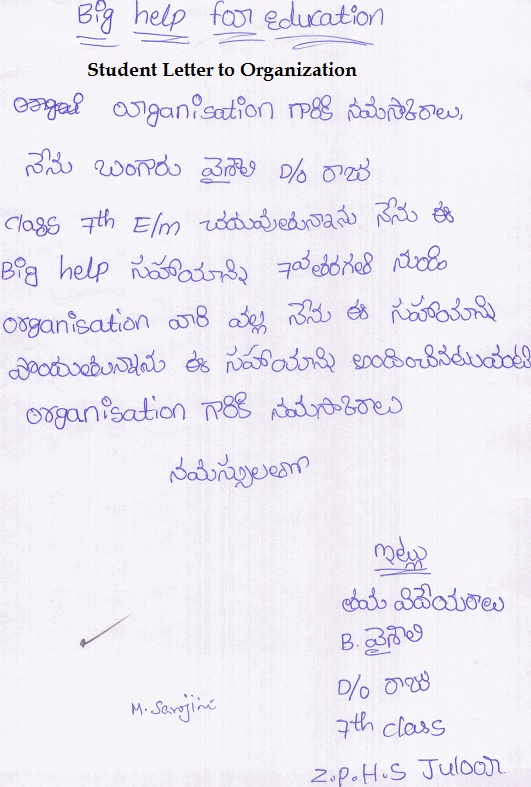 Big help for education
Student Letter to Organization
organisation గారికి నమసాకిరాలు,
నేను బంగారు వైశాలి D/o రాజు
class 7th E/m చదువుతున్నాను నేను ఈ
Big help సహాయాన్ని 7వతరగతి నుండి
organisation వారి వల్ల నేను ఈ సహాయాన్ని
పొందుతున్నాను ఈ సహాయాన్ని అందించినటువంటి
organisation గారికి నమసాకిరాలు
నమస్సులతో
ఇట్లు
తమ విదేయరాలు
B. వైశాలి
D/o రాజు
M. Sarojini
7th class
Z.P.H.S Juloor.